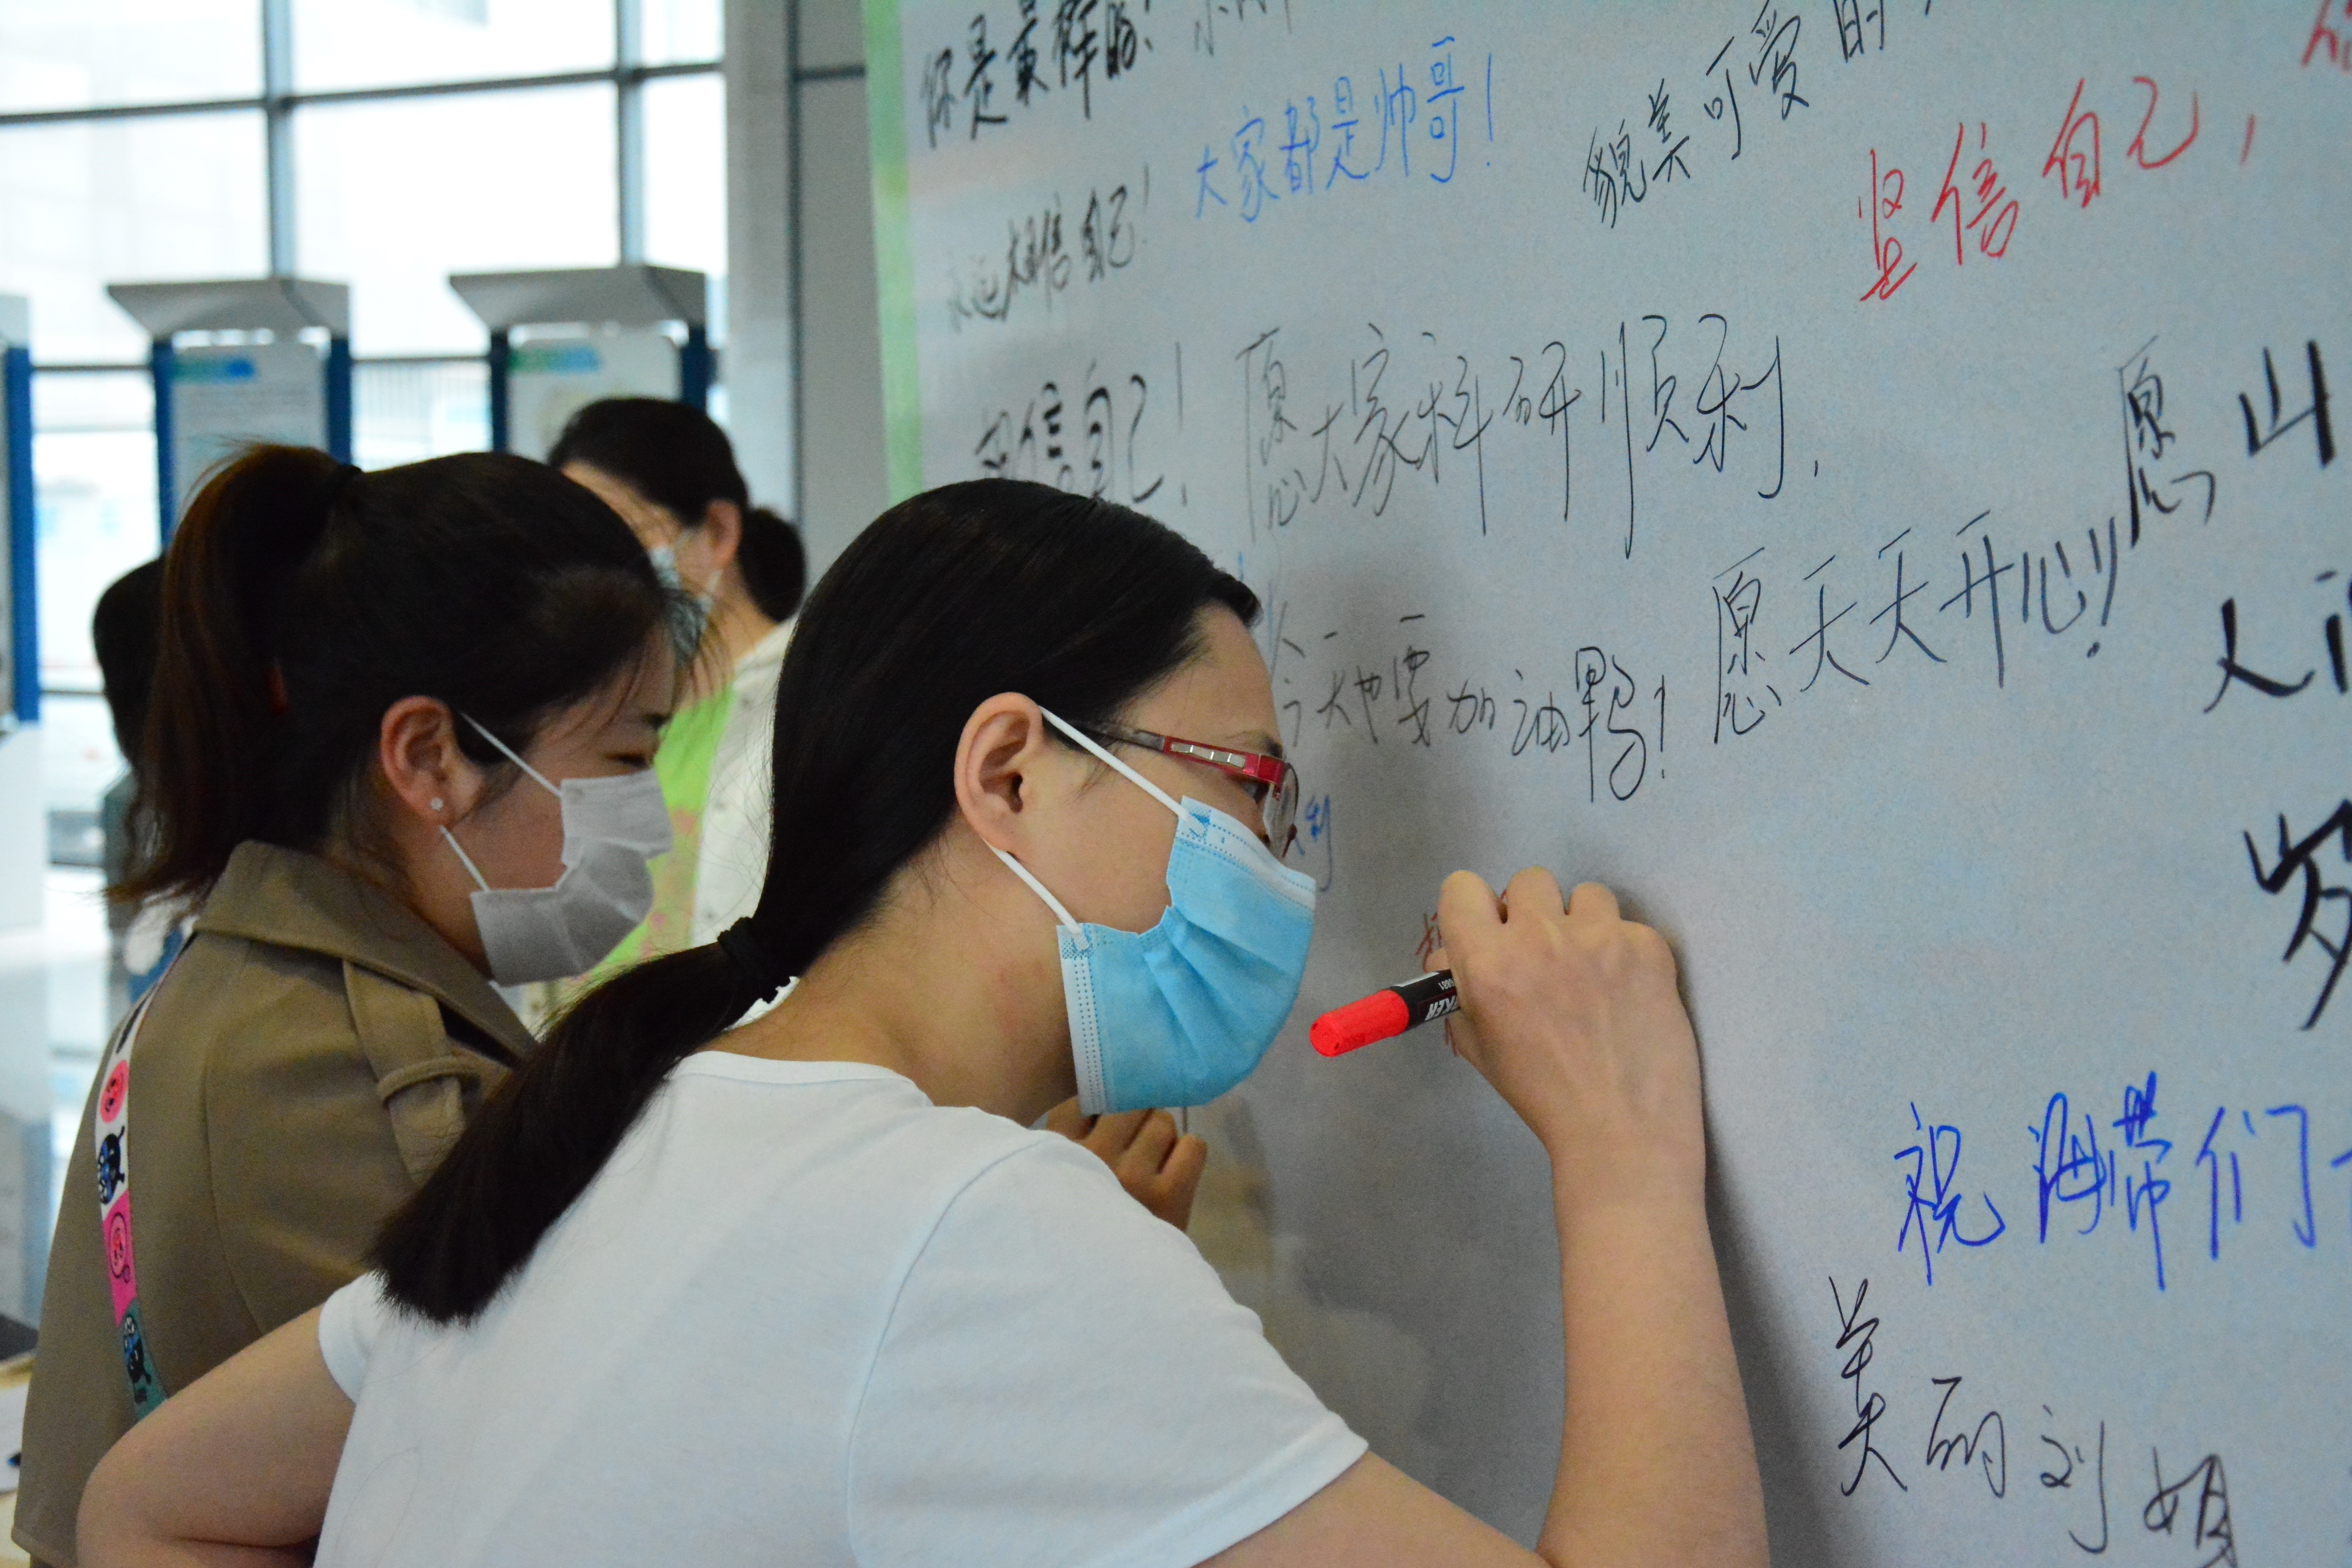 你是最棒的！
大家都是帅哥！
貌美可爱的
坚信自己，
永远相信自己！
相信自己！
愿大家科研顺利，
愿天天开心！！
愿山
今天也要加油鸭！
人
岁
利
祝海带们
美丽刘姐